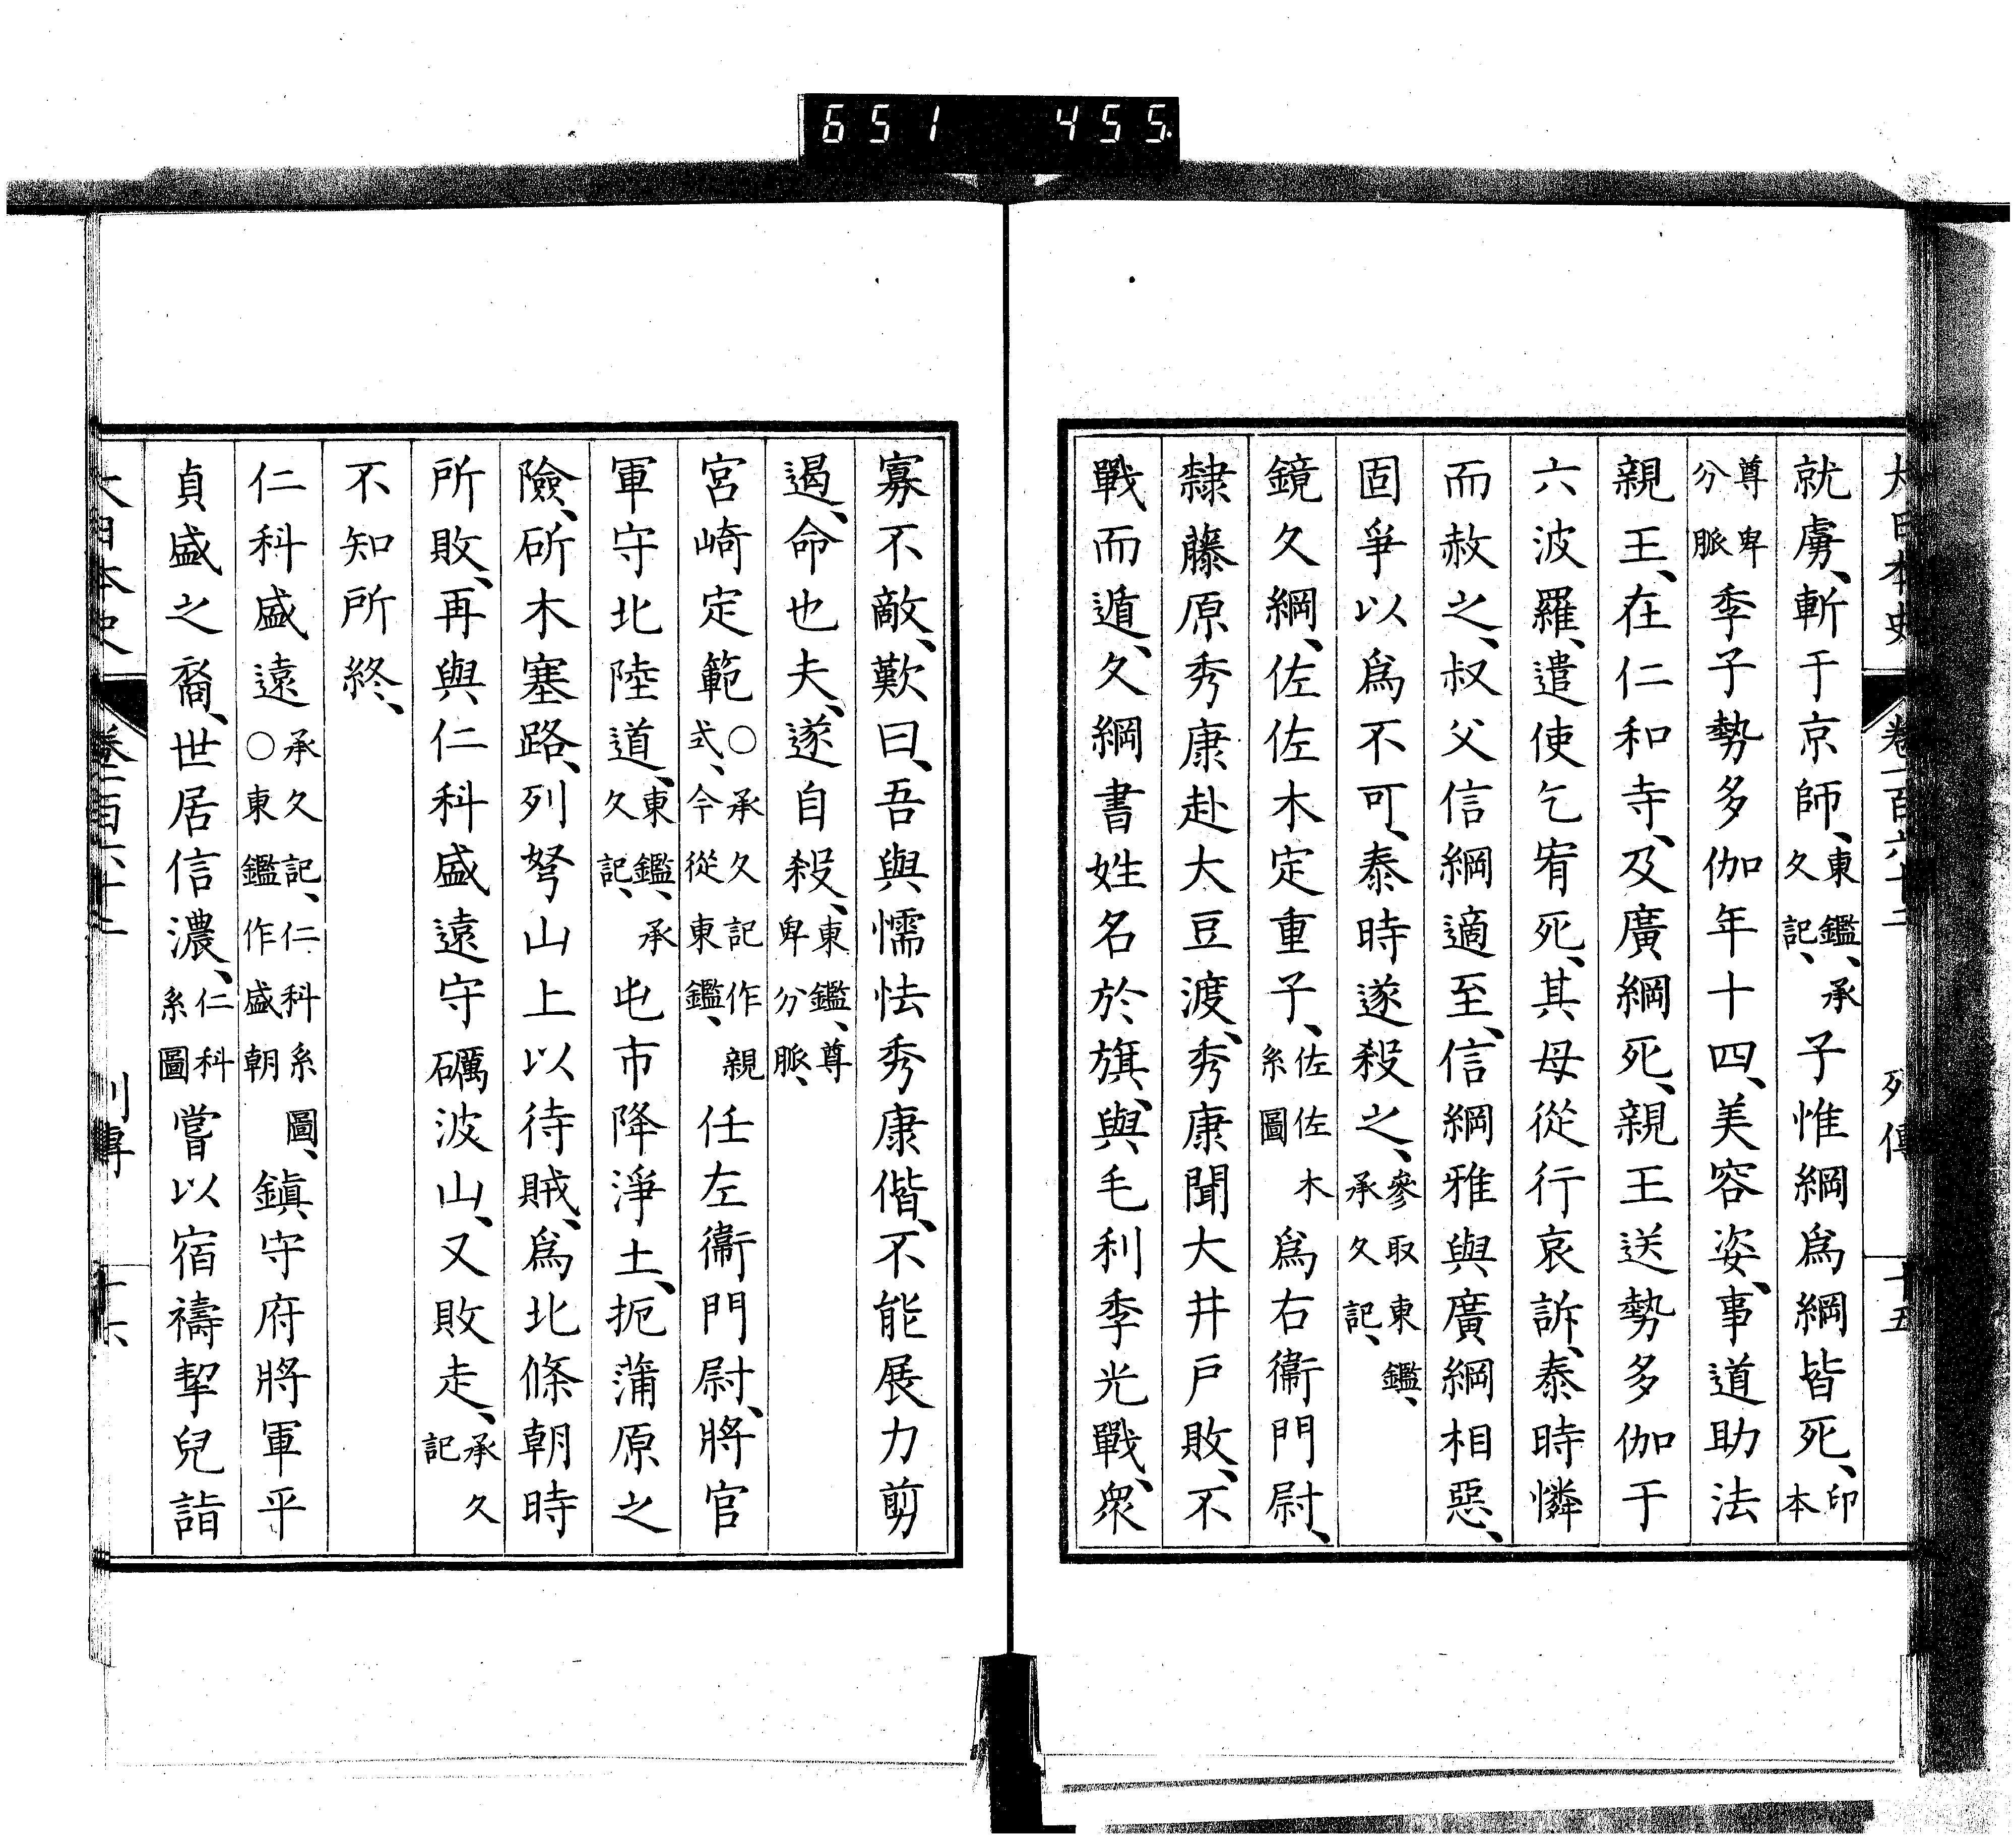 651 455
大日本史 卷一百六十二 列傳 十五
就虜、斬于京師、東鑑、承久記、子惟綱爲綱皆死、印本
尊卑分脈季子勢多伽年十四、美容姿、事道助法
親王、在仁和寺、及廣綱死、親王送勢多伽于
六波羅、遣使乞宥死、其母從行哀訴、泰時憐
而赦之、叔父信綱適至、信綱雅與廣綱相惡、
固爭以爲不可、泰時遂殺之、參取東鑑、承久記、
鏡久綱、佐佐木定重子、佐佐木系圖爲右衞門尉、
隸藤原秀康赴大豆渡、秀康聞大井戸敗、不
戰而遁、久綱書姓名於旗、與毛利季光戰、衆
寡不敵、歎曰、吾與懦怯秀康偕、不能展力剪
遏、命也夫、遂自殺、東鑑、尊卑分脈、
宮崎定範○承久記作親式、今從東鑑、任左衞門尉、將官
軍守北陸道、東鑑、承久記、屯市降淨土、扼蒲原之
險、斫木塞路、列弩山上以待賊、爲北條朝時
所敗、再與仁科盛遠守礪波山、又敗走、承久記
不知所終、
仁科盛遠承久記、仁科系圖、○東鑑作盛朝鎭守府將軍平
貞盛之裔、世居信濃、仁科系圖嘗以宿禱挈兒詣
大日本史 卷一百六十二 列傳 十六